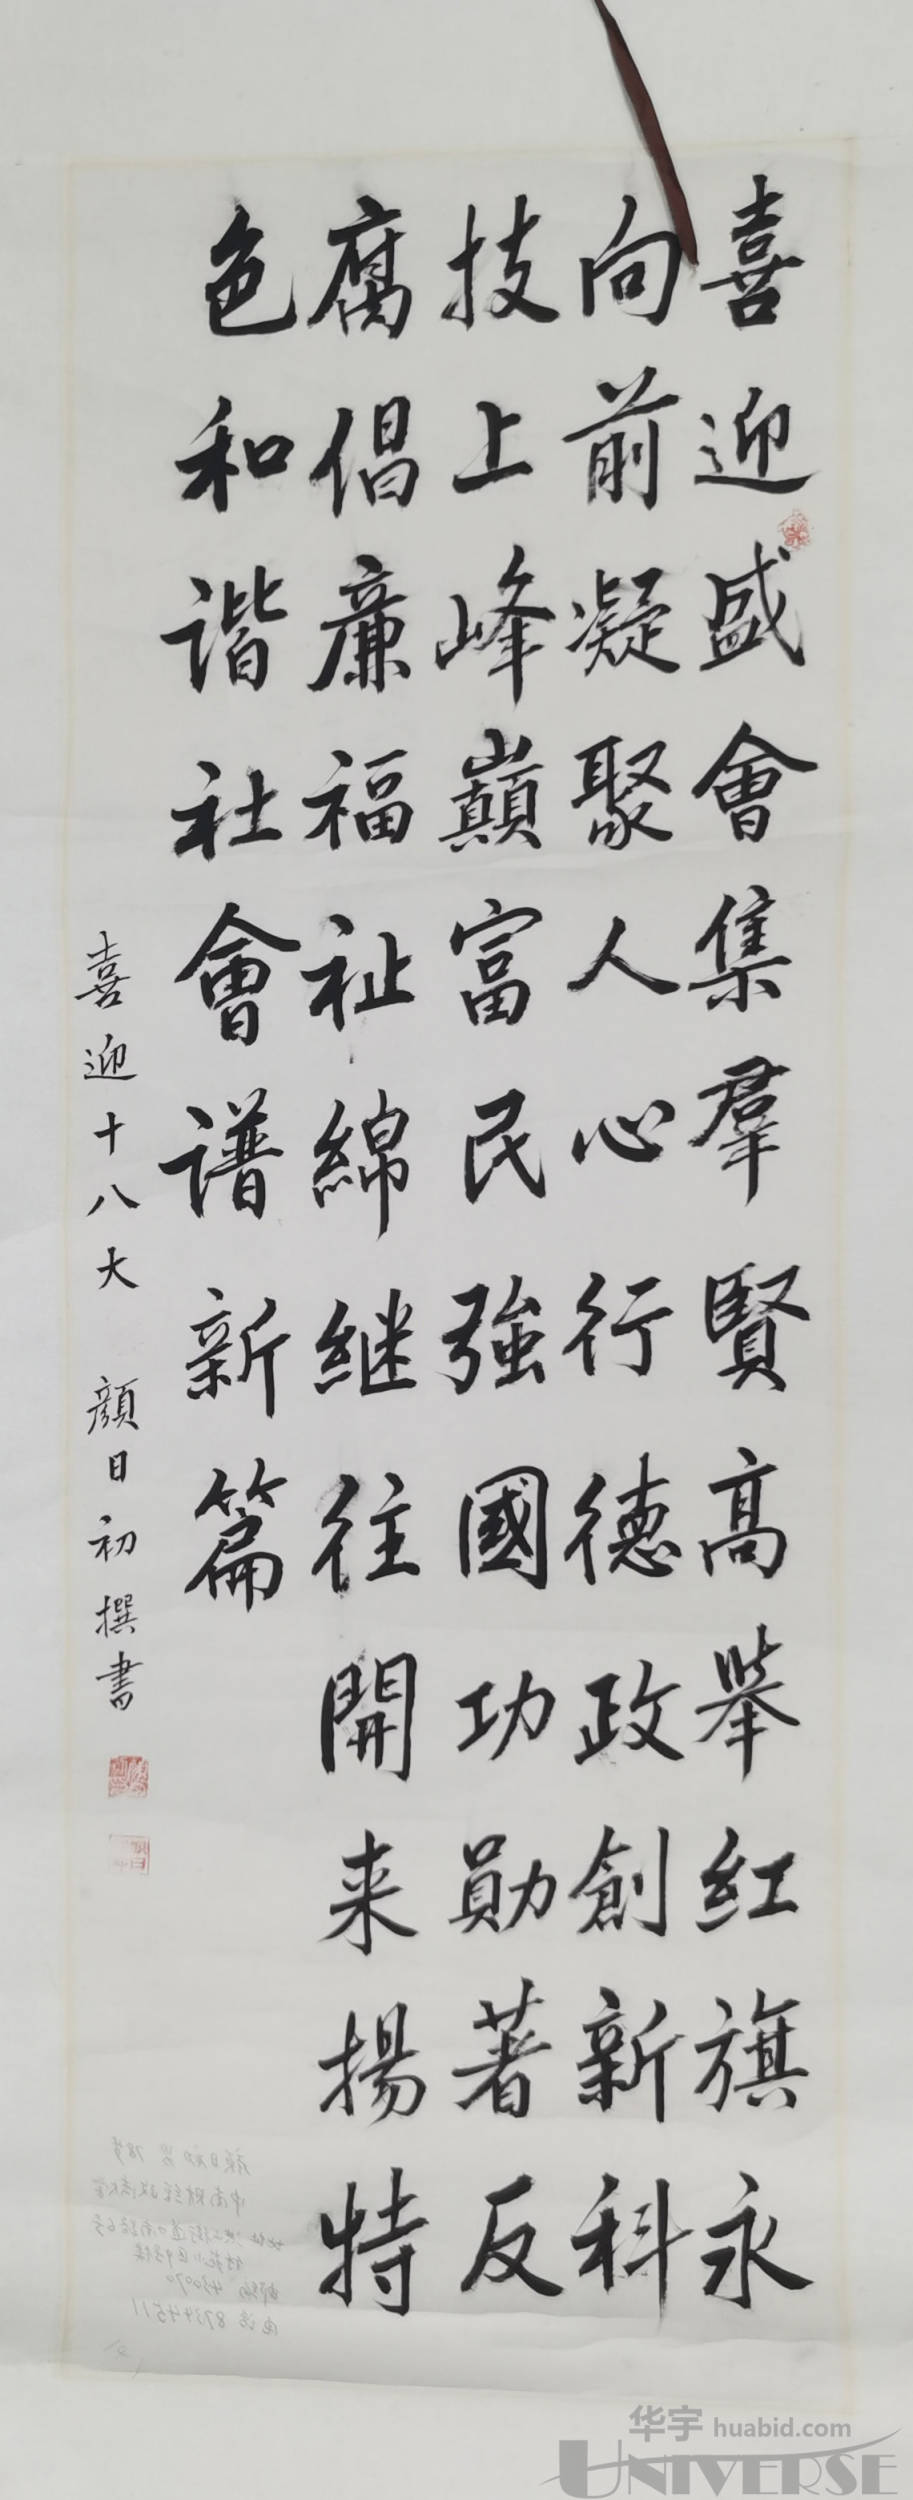 喜迎盛會集羣賢高舉红旗永
向前凝聚人心行德政創新科
技上峰巔富民強國功勛著反
腐倡廉福祉綿继往開来揚特
色和谐社會谱新篇
喜迎十八大 顔日初撰書
华宇 huabid.com
UNIVERSE